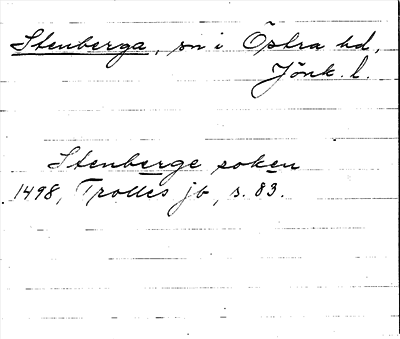 Stenberga, sn i Östra hd,
Jönk. l.
Stenberge soken
1498, Trolles jb, s. 83.